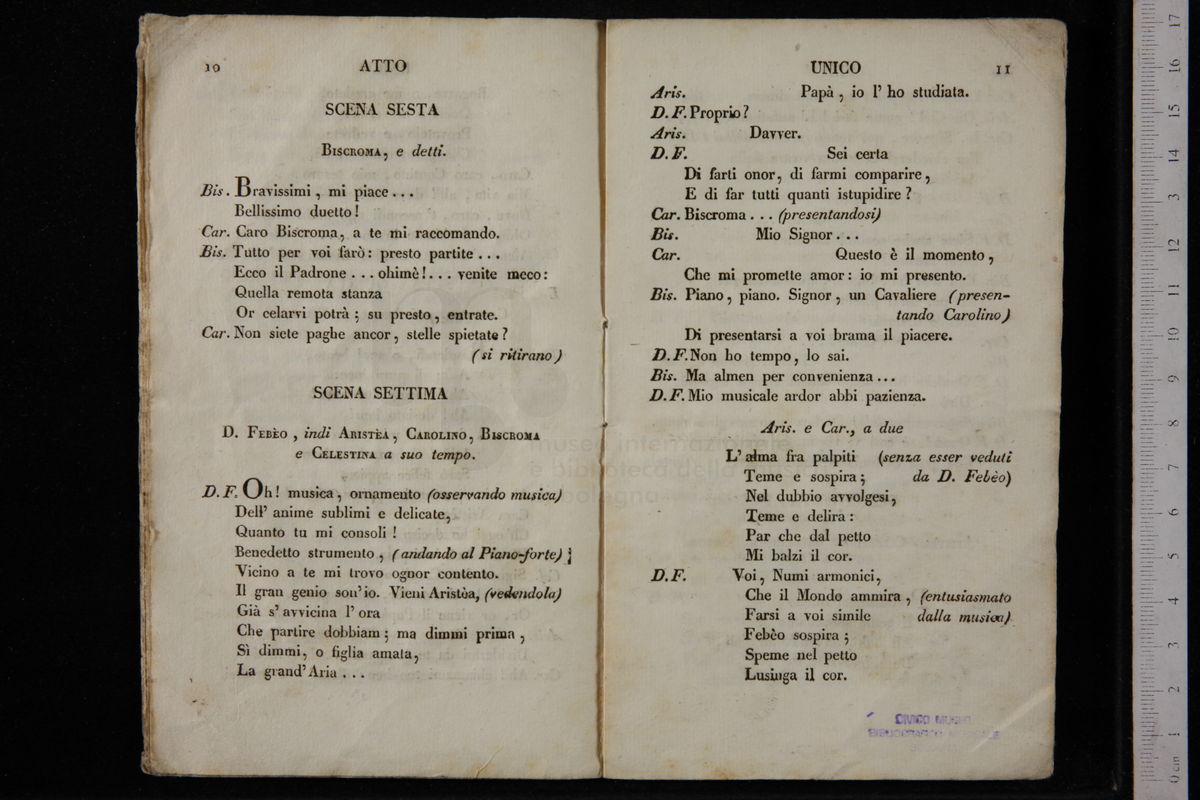 10 ATTO
SCENA SESTA
BISCROMA, e detti.
Bis. Bravissimi, mi piace...
Bellissimo duetto!
Car. Caro Biscroma, a te mi raccomando.
Bis. Tutto per voi farò: presto partite...
Ecco il Padrone... ohimè!... venite meco:
Quella remota stanza
Or celarvi potrà; su presto, entrate.
Car. Non siete paghe ancor, stelle spietate?
(si ritirano)
SCENA SETTIMA
D. FEBÈO, indi ARISTÈA, CAROLINO, BISCROMA
e CELESTINA a suo tempo.
D. F. Oh! musica, ornamento (osservando musica)
Dell' anime sublimi e delicate,
Quanto tu mi consoli!
Benedetto strumento, (andando al Piano-forte);
Vicino a te mi trovo ognor contento.
Il gran genio son' io. Vieni Aristèa, (vedendola)
Già s' avvicina l' ora
Che partire dobbiam; ma dimmi prima,
Sì dimmi, o figlia amata,
La grand' Aria...
UNICO 11
Aris. Papà, io l' ho studiata.
D. F. Proprio?
Aris. Davver.
D. F. Sei certa
Di farti onor, di farmi comparire,
E di far tutti quanti istupidire?
Car. Biscroma... (presentandosi)
Bis. Mio Signor...
Car. Questo è il momento,
Che mi promette amor: io mi presento.
Bis. Piano, piano. Signor, un Cavaliere (presen-
tando Carolino)
Di presentarsi a voi brama il piacere.
D. F. Non ho tempo, lo sai.
Bis. Ma almen per convenienza...
D. F. Mio musicale ardor abbi pazienza.
Aris. e Car., a due
L' alma fra palpiti (senza esser veduti
Teme e sospira; da D. Febèo)
Nel dubbio avvolgesi,
Teme e delira:
Par che dal petto
Mi balzi il cor.
D. F. Voi, Numi armonici,
Che il Mondo ammira, (entusiasmato
Farsi a voi simile dalla musica)
Febèo sospira;
Speme nel petto
Lusinga il cor.
CIVICO MUSEO
museo internazionale
e biblioteca della
bologna
0 cm 1 2 3 4 5 6 7 8 9 10 11 12 13 14 15 16 17